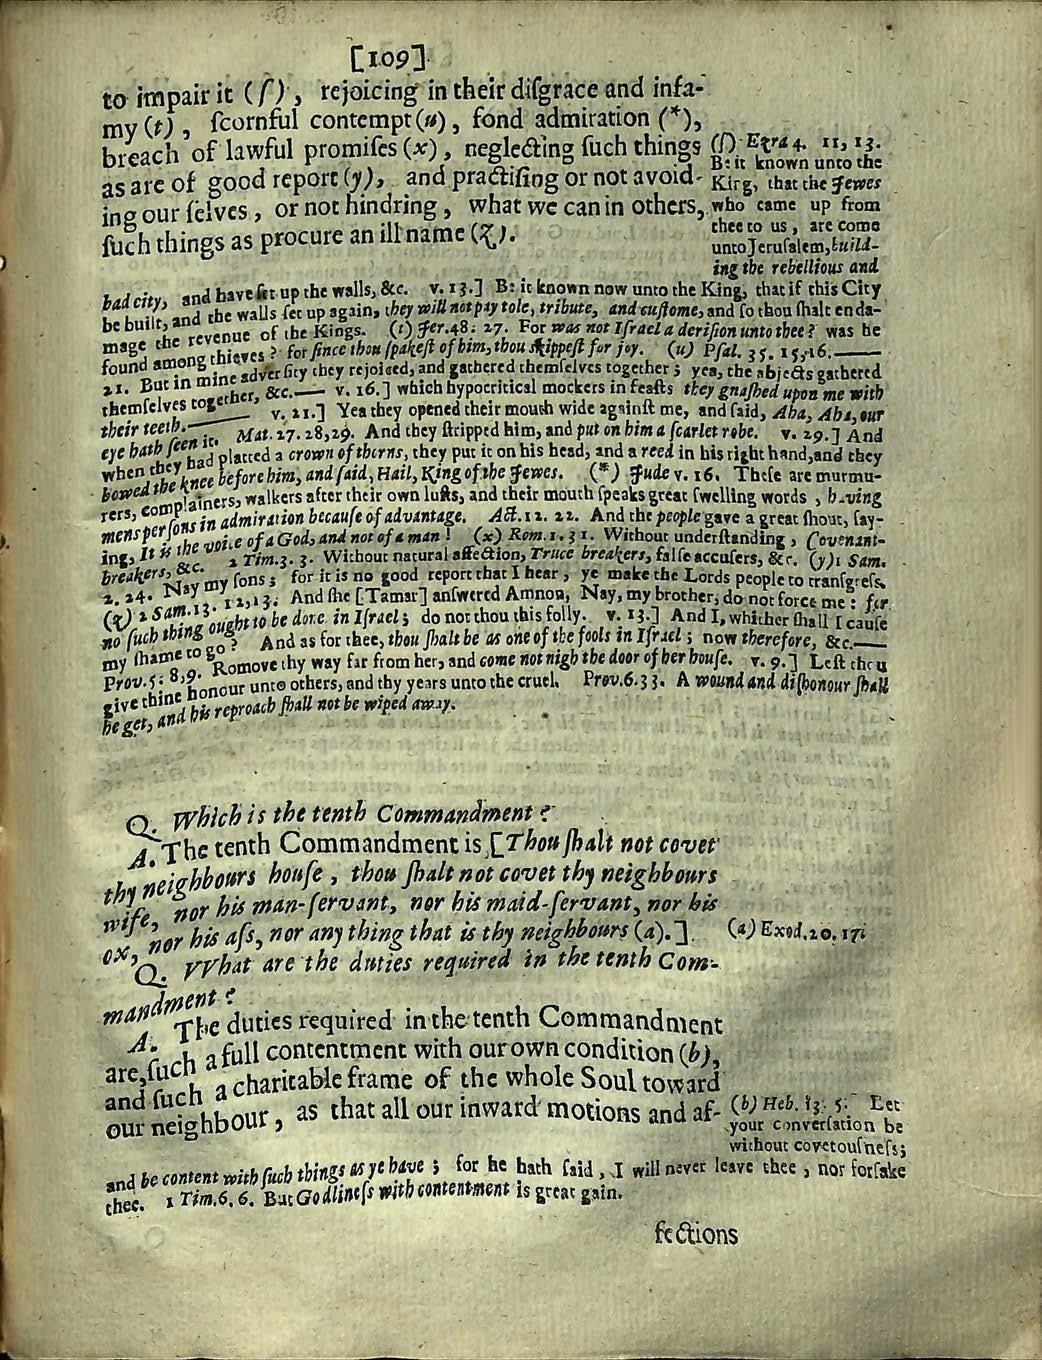 [109]
to impair it (ſ), rejoicing in their diſgrace and infa-
my (t), ſcornful contempt (u), fond admiration (*),
breach of lawful promiſes (x), neglecting ſuch things
as are of good report (y), and practiſing or not avoid-
ing our ſelves, or not hindring, what we can in others,
ſuch things as procure an ill name (z).
(ſ) Ezra 4. 11, 13.
Be it known unto the
King, that the Jewes
who came up from
thee to us, are come
unto Jeruſalem, build-
ing the rebellious and
bad city, and have ſet up the walls, &c. v. 13.] Be it known now unto the King, that if this City
be built, and the walls ſet up again, they will not pay tole, tribute, and cuſtome, and ſo thou ſhalt enda-
mage the revenue of the Kings. (t) Jer. 48. 27. For was not Iſrael a deriſion unto thee? was he
found among thieves? for ſince thou ſpakeſt of him, thou skippeſt for joy. (u) Pſal. 35. 15, 16.——
21. But in mine adverſity they rejoiced, and gathered themſelves together; yea, the abjects gathered
themſelves together, &c.—— v. 16.] which hypocritical mockers in feaſts they gnaſhed upon me with
their teeth.—— v. 21.] Yea they opened their mouth wide againſt me, and ſaid, Aha, Aha, our
eye hath ſeen it. Mat. 27. 28, 29. And they ſtripped him, and put on him a ſcarlet robe. v. 29.] And
when they had platted a crown of thorns, they put it on his head, and a reed in his right hand, and they
bowed the knee before him, and ſaid, Hail, King of the Jewes. (*) Jude v. 16. Theſe are murmu-
rers, complainers, walkers after their own luſts, and their mouth ſpeaks great ſwelling words, having
mens perſons in admiration becauſe of advantage. Act. 12. 22. And the people gave a great ſhout, ſay-
ing, It is the voice of a God, and not of a man! (x) Rom. 1. 31. Without underſtanding, Covenant-
breakers, &c. 2 Tim. 3. 3. Without natural affection, Truce breakers, falſe accuſers, &c. (y) 1 Sam.
2. 24. Nay my ſons; for it is no good report that I hear, ye make the Lords people to tranſgreſs.
(z) 2 Sam. 13. 12, 13. And ſhe [Tamar] anſwered Amnon, Nay, my brother, do not force me: for
no ſuch thing ought to be done in Iſrael; do not thou this folly. v. 13.] And I, whither ſhall I cauſe
my ſhame to go? And as for thee, thou ſhalt be as one of the fools in Iſrael; now therefore, &c.——
Prov. 5. 8, 9. Romove thy way far from her, and come not nigh the door of her houſe. v. 9.] Leſt thou
give thine honour unto others, and thy years unto the cruel. Prov. 6. 33. A wound and diſhonour ſhall
he get, and his reproach ſhall not be wiped away.
Q. Which is the tenth Commandment?
A. The tenth Commandment is, [Thou ſhalt not covet
thy neighbours houſe, thou ſhalt not covet thy neighbours
wife, nor his man-ſervant, nor his maid-ſervant, nor his
ox, nor his aſs, nor any thing that is thy neighbours (a).]
(a) Exod. 20. 17.
Q. VVhat are the duties required in the tenth Com-
mandment?
A. The duties required in the tenth Commandment
are, ſuch a full contentment with our own condition (b),
and ſuch a charitable frame of the whole Soul toward
our neighbour, as that all our inward motions and af-
(b) Heb. 13. 5. Let
your converſation be
without covetouſneſs;
and be content with ſuch things as ye have; for he hath ſaid, I will never leave thee, nor forſake
thee. 1 Tim. 6. 6. But Godlineſs with contentment is great gain.
fections